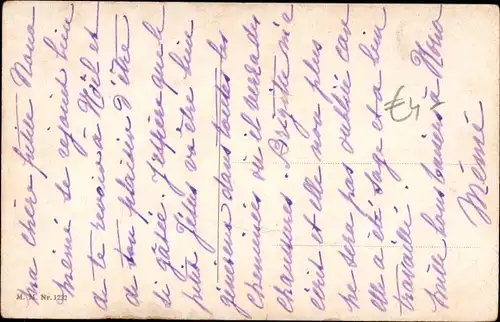 ma chère petite Nona
mémé se rejouie bien
à te revoir à Noël et
de ton plaisir d'être
si gâtée. J'espère que le
petit Jésus va être bien
généreux dans toutes les
cheminées où il verra des
chaussures. Brigitte ne
sera et elle non plus
ne sera pas oubliée car
elle a été sage et a bien
travaillé.
mille bons baisers à Nona
Mémé
€4-
M. M. Nr. 1222